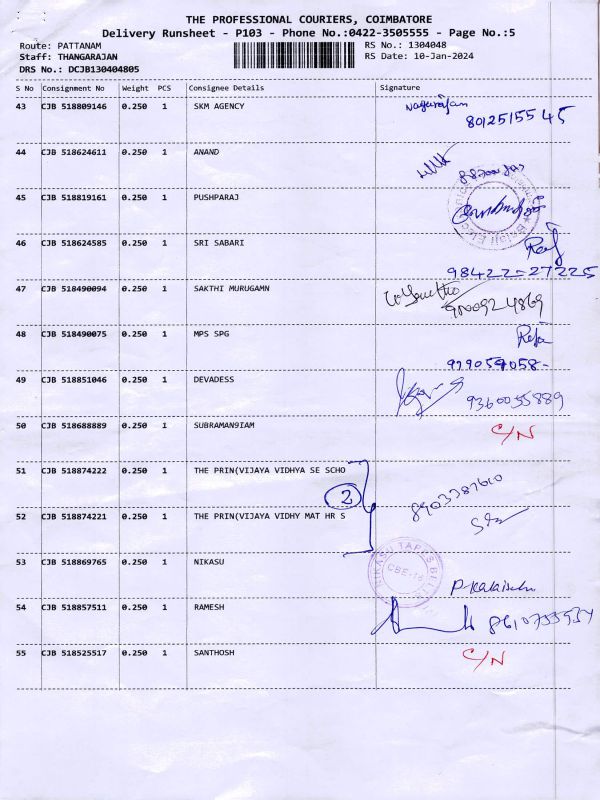 THE PROFESSIONAL COURIERS, COIMBATORE
Delivery Runsheet - P103 - Phone No.:0422-3505555 - Page No.:5
Route: PATTANAM RS No.: 1304048
Staff: THANGARAJAN RS Date: 10-Jan-2024
DRS No.: DCJB130404805
S No Consignment No Weight PCS Consignee Details Signature
43 CJB 518809146 0.250 1 SKM AGENCY Nagarajan
8012515545
44 CJB 518624611 0.250 1 ANAND
45 CJB 518819161 0.250 1 PUSHPARAJ
46 CJB 518624585 0.250 1 SRI SABARI
98422-27225
47 CJB 518490094 0.250 1 SAKTHI MURUGAMN
9000924869
48 CJB 518490075 0.250 1 MPS SPG
979059058-
49 CJB 518851046 0.250 1 DEVADESS
9360055889
50 CJB 518688889 0.250 1 SUBRAMAN9IAM C/N
51 CJB 518874222 0.250 1 THE PRIN(VIJAYA VIDHYA SE SCHO
2 8903387610
52 CJB 518874221 0.250 1 THE PRIN(VIJAYA VIDHY MAT HR S
53 CJB 518869765 0.250 1 NIKASU NIKASU TAPES CBE-18
54 CJB 518857511 0.250 1 RAMESH 8610733534
55 CJB 518525517 0.250 1 SANTHOSH C/N